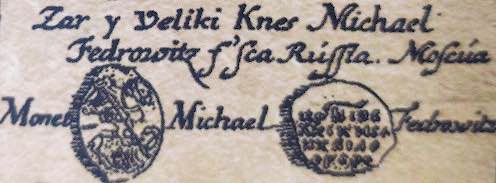 Zar y Veliki Knes Michael
Fedrowitz f'sca Rússia. Moscúa
Monet Michael Fedrowitz